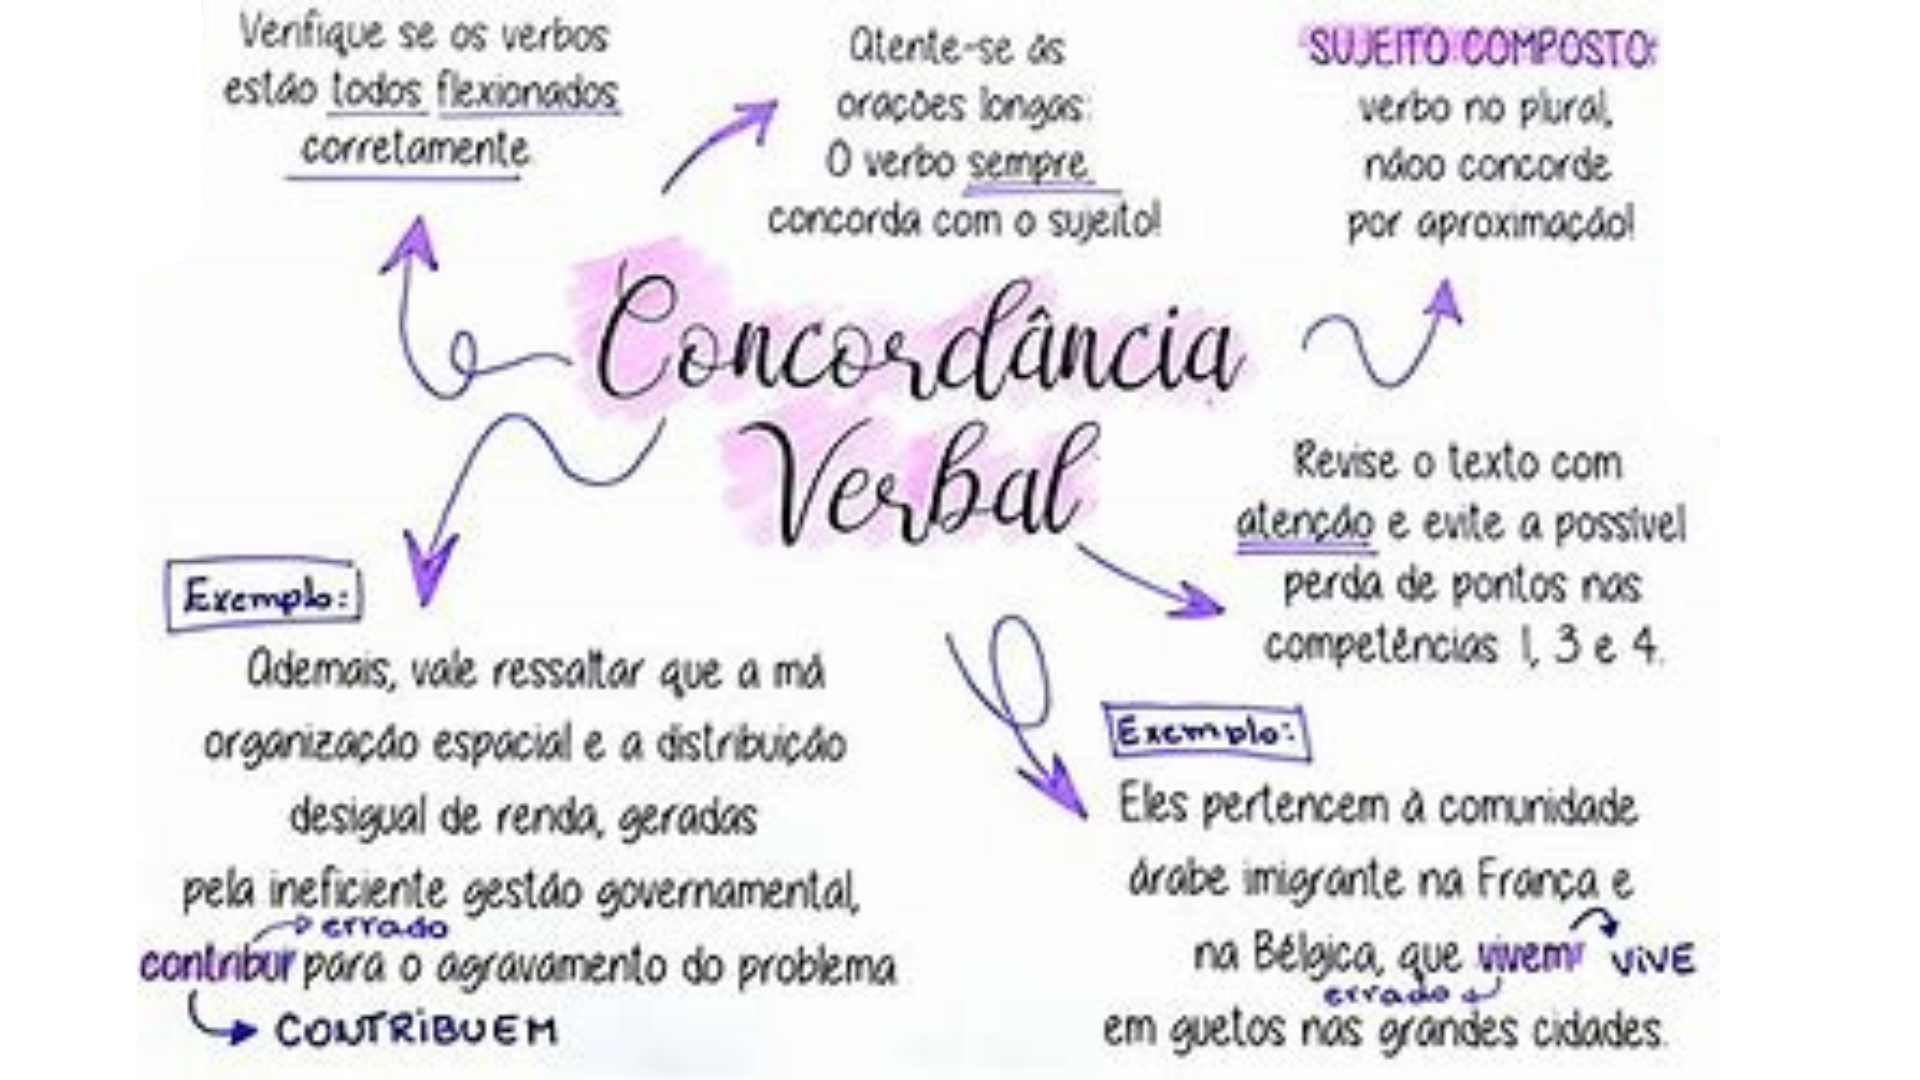 Verifique se os verbos
estão todos flexionados
corretamente.
Atente-se às
orações longas:
O verbo sempre
concorda com o sujeito!
SUJEITO COMPOSTO:
verbo no plural,
nãoo concorde
por aproximação!
Concordância
Verbal
Revise o texto com
atenção e evite a possível
perda de pontos nas
competências 1, 3 e 4.
Exemplo:
Ademais, vale ressaltar que a má
organização espacial e a distribuição
desigual de renda, geradas
pela ineficiente gestão governamental,
errado
contribur para o agravamento do problema
CONTRIBUEM
Exemplo:
Eles pertencem à comunidade
árabe imigrante na França e
na Bélgica, que vivem VIVE
errado
em guetos nas grandes cidades.